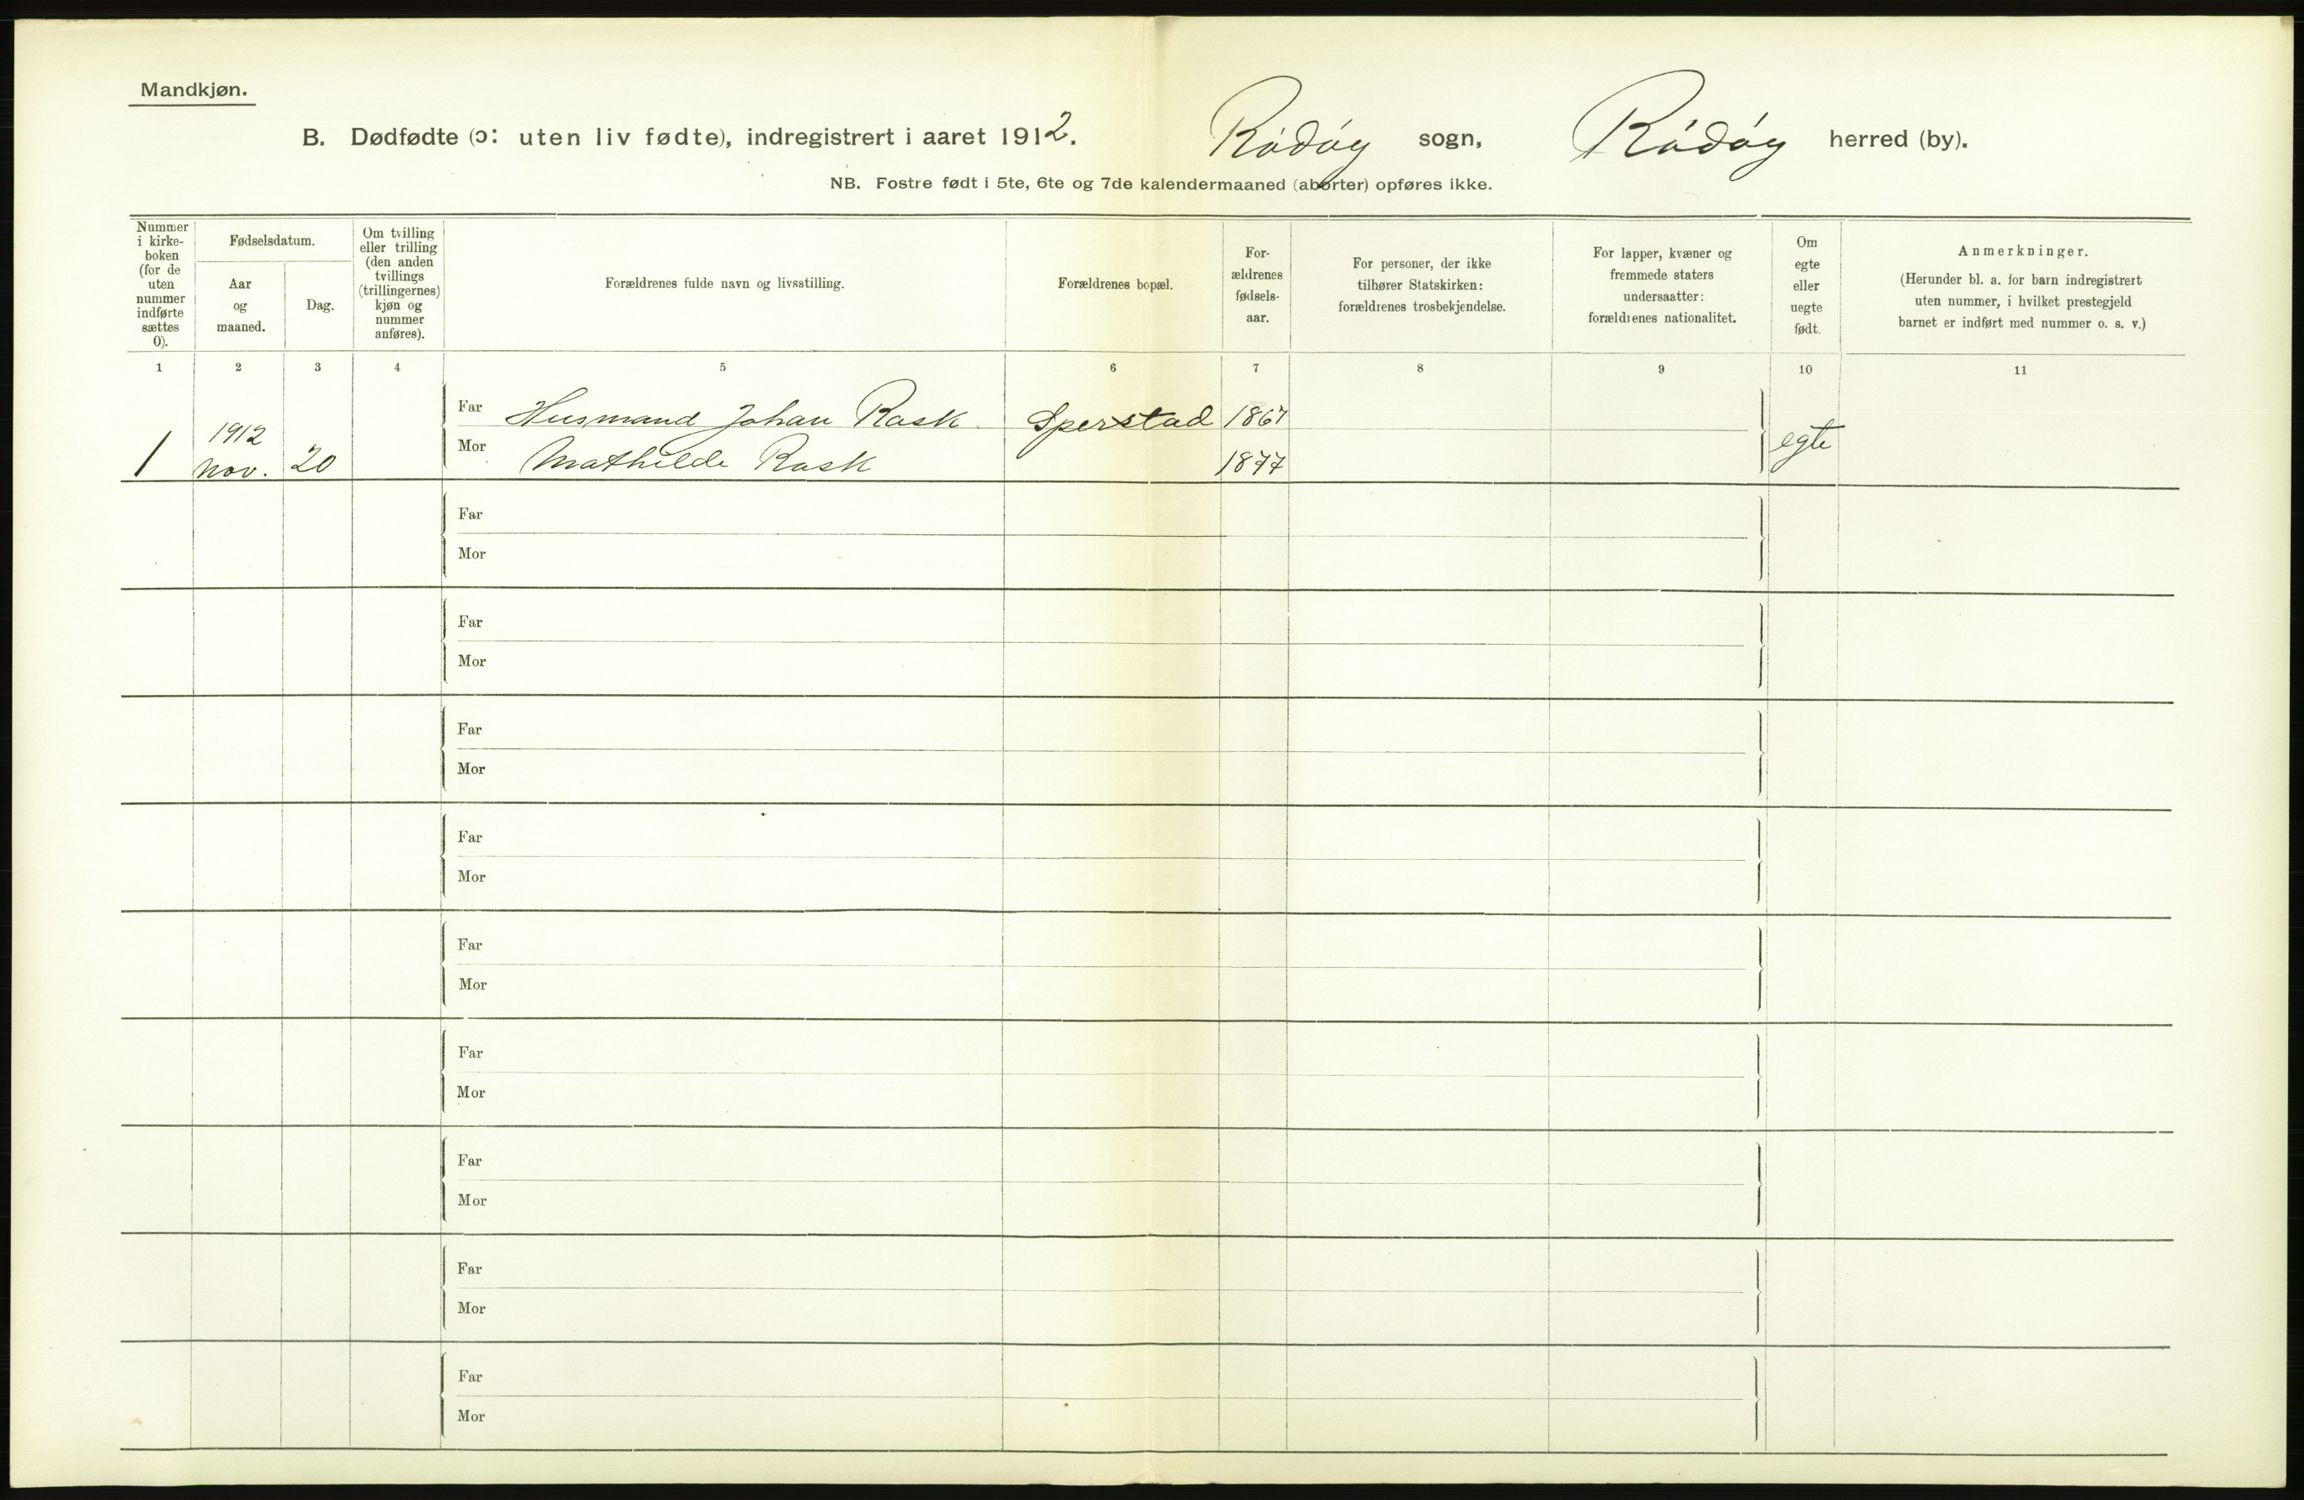 Mandkjøn.
B. Dødfødte (ɔ: uten liv fødte), indregistrert i aaret 1912. Rödöy sogn, Rödöy herred (by).
NB. Fostre født i 5te, 6te og 7de kalendermaaned (aborter) opføres ikke.
Nummer
i kirke-
boken
(for de
uten
nummer
indførte
sættes
0).
Fødselsdatum.
Aar
og
maaned.
Dag.
Om tvilling
eller trilling
(den anden
tvillings
(trillingernes)
kjøn og
nummer
anføres).
Forældrenes fulde navn og livsstilling.
Forældrenes bopæl.
For-
ældrenes
fødsels-
aar.
For personer, der ikke
tilhører Statskirken:
forældrenes trosbekjendelse.
For lapper, kvæner og
fremmede staters
undersaatter:
forældrenes nationalitet.
Om
egte
eller
uegte
født.
Anmerkninger.
(Herunder bl. a. for barn indregistrert
uten nummer, i hvilket prestegjeld
barnet er indført med nummer o. s. v.)
1 2 3 4 5 6 7 8 9 10 11
Far Husmand Johan Rask. Sperstad 1867
1 1912 nov. 20 Mor Mathilde Rask 1877 egte
Far
Mor
Far
Mor
Far
Mor
Far
Mor
Far
Mor
Far
Mor
Far
Mor
Far
Mor
Far
Mor